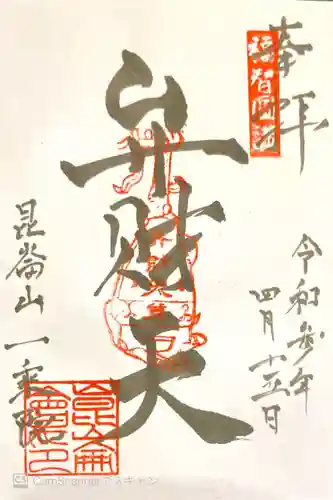 奉拝
福智円満
弁財天
令和参年
四月十五日
昆崙山一乗院
CamScannerでスキャン